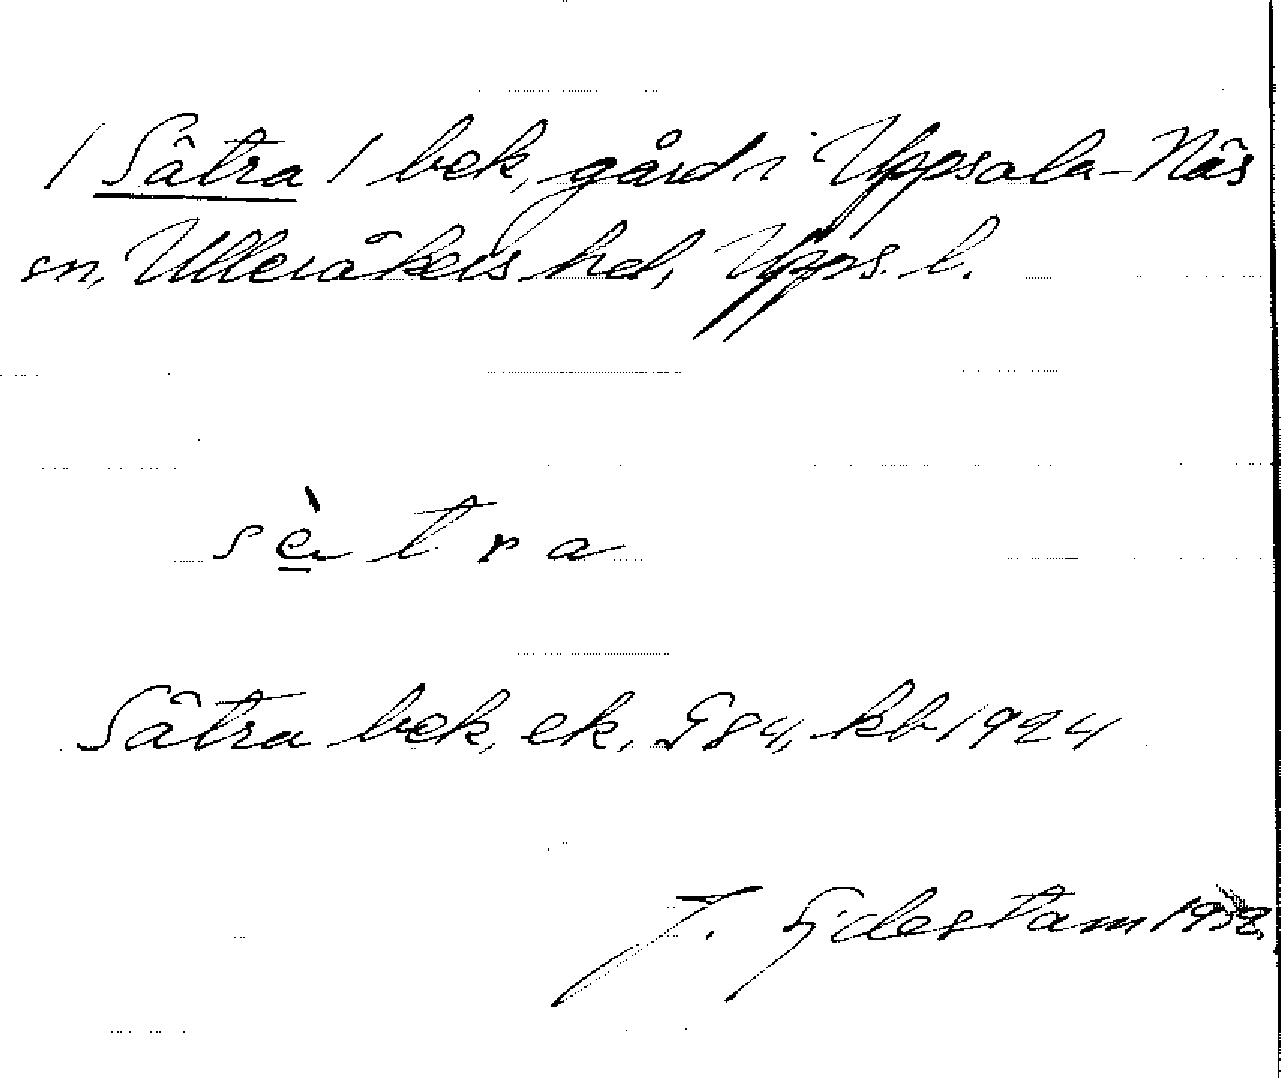 / Sätra / bek. gård i Uppsala-Näs
sn, Ulleråkers hd, Upps. l.
sè̱tra
Sätra bek, ek. G84, kb 1924
F. Gidestam 1932